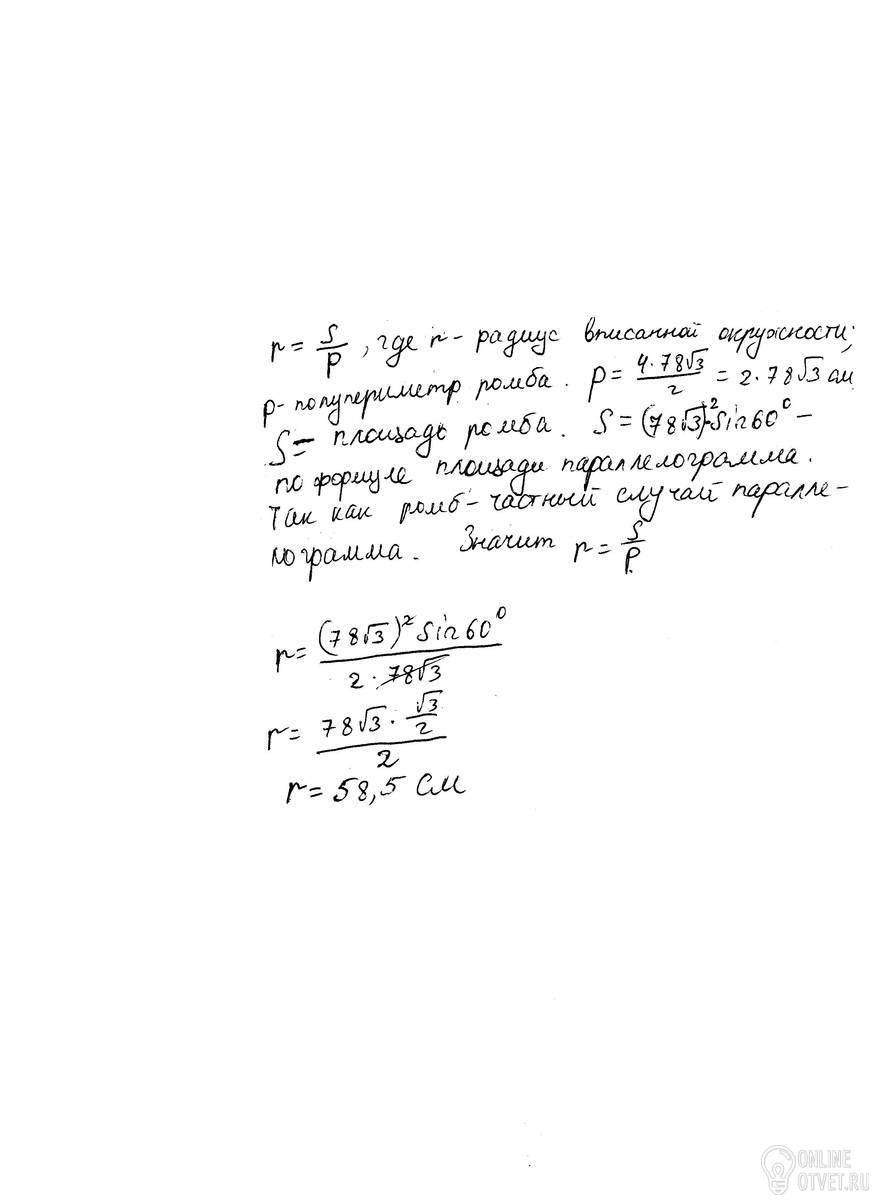 r = S/p , где r - радиус вписанной окружности;
p - полупериметр ромба. p = 4·78√3/2 = 2·78√3 см
S - площадь ромба. S = (78√3)²·Sin60⁰ -
по формуле площади параллелограмма.
Так как ромб - частный случай паралле-
лограмма. Значит r = S/p.
r = (78√3)² Sin60⁰/2·78√3
r = 78√3 · √3/2/2
r = 58,5 см
ONLINE
OTVET.RU